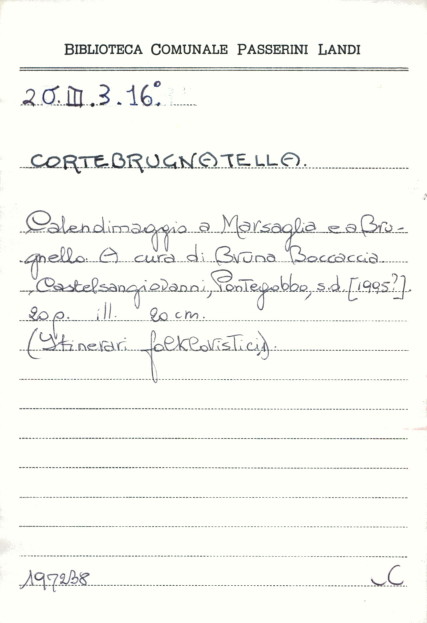 BIBLIOTECA COMUNALE PASSERINI LANDI
20.III.3.16°.
CORTEBRUGNATELLA.
Calendimaggio a Marsaglia e a Bru-
gnello. A cura di Bruna Boccaccia.
Castelsangiovanni, Pontegobbo, s.d. [1995?].
20 p. ill. 20 cm.
(Itinerari folkloristici).
197238
C